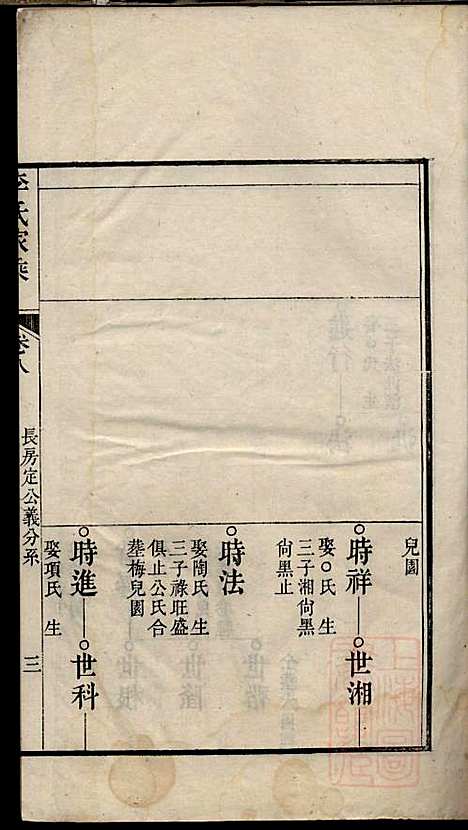 兒園
時祥 世湘
娶○氏 生
三子湘尙黑
尙黑止
時法
娶陶氏 生
三子祿旺盛
俱止公氏合
塟梅兒園
時進 世科
娶項氏 生
李氏家乘
卷八
長房定公義分系
三